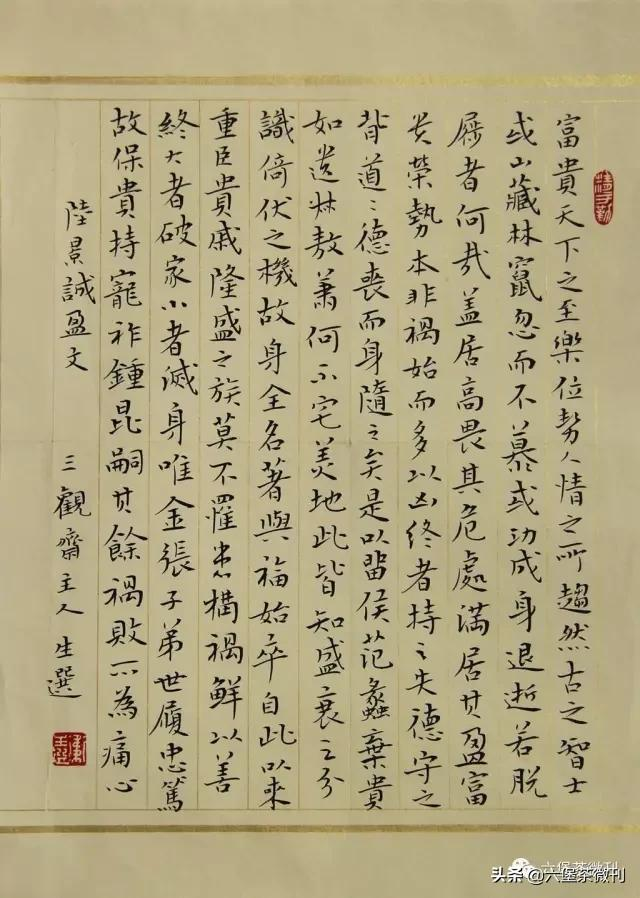 富貴天下之至樂位勢人情之所趨然古之智士
或山藏林竄忽而不慕或功成身退逝若脫
屣者何哉盖居高畏其危處滿居其盈富
貴榮勢本非禍始而多以凶終者持之失德守之
背道〻德喪而身隨之矣是以畱侯范蠡棄貴
如遺叔敖蕭何不宅美地此皆知盛衰之分
識倚伏之機故身全名著與福始卒自此以来
重臣貴戚隆盛之族莫不罹患構禍鮮以善
終大者破家小者滅身唯金張子弟世履忠篤
故保貴持寵祚鍾昆嗣其餘禍敗可為痛心
陸景誡盈文 三觀齋主人生選
六堡茶微刊
头条@六堡茶微刊